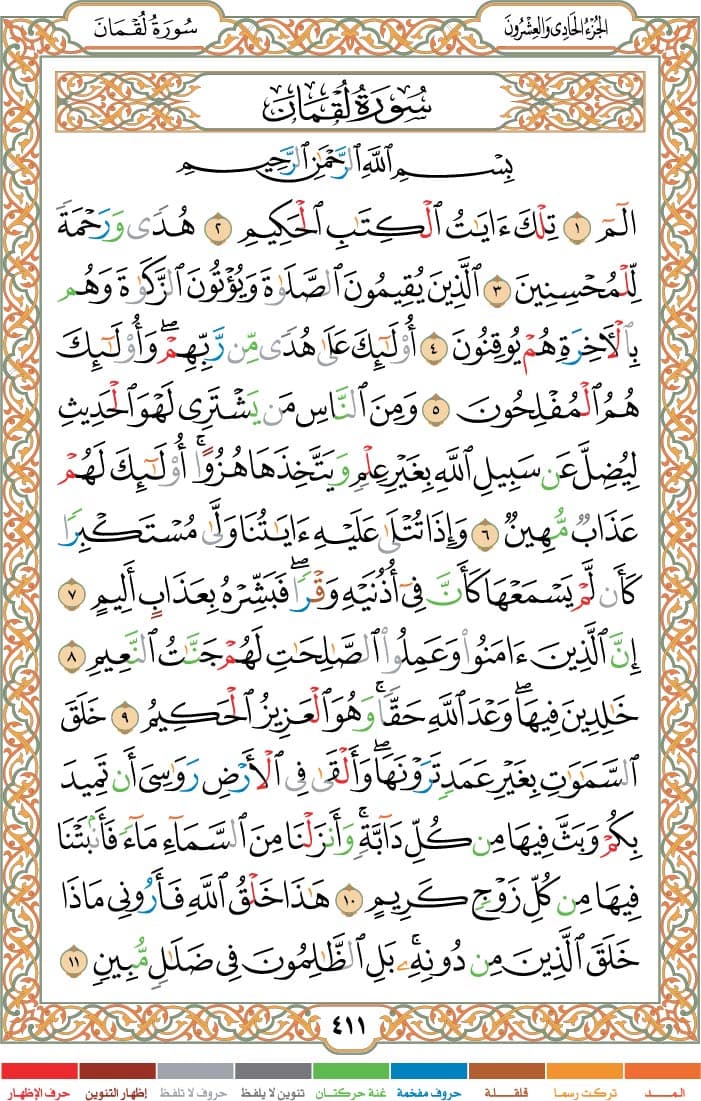 الجُزْءُ الحَادِى وَالعِشْرُونَ
سُورَةُ لُقْمَانَ
سُورَةُ لُقْمَانَ
بِسْمِ اللَّهِ الرَّحْمَٰنِ الرَّحِيمِ
الٓمٓ ١ تِلْكَ ءَايَٰتُ الْكِتَٰبِ الْحَكِيمِ ٢ هُدًى وَرَحْمَةً
لِّلْمُحْسِنِينَ ٣ الَّذِينَ يُقِيمُونَ الصَّلَوٰةَ وَيُؤْتُونَ الزَّكَوٰةَ وَهُم
بِالْأَخِرَةِ هُمْ يُوقِنُونَ ٤ أُوْلَٰٓئِكَ عَلَىٰ هُدًى مِّن رَّبِّهِمْ ۖ وَأُوْلَٰٓئِكَ
هُمُ الْمُفْلِحُونَ ٥ وَمِنَ النَّاسِ مَن يَشْتَرِى لَهْوَ الْحَدِيثِ
لِيُضِلَّ عَن سَبِيلِ اللَّهِ بِغَيْرِ عِلْمٍ وَيَتَّخِذَهَا هُزُوًا ۚ أُوْلَٰٓئِكَ لَهُمْ
عَذَابٌ مُّهِينٌ ٦ وَإِذَا تُتْلَىٰ عَلَيْهِ ءَايَٰتُنَا وَلَّىٰ مُسْتَكْبِرًا
كَأَن لَّمْ يَسْمَعْهَا كَأَنَّ فِىٓ أُذُنَيْهِ وَقْرًا ۖ فَبَشِّرْهُ بِعَذَابٍ أَلِيمٍ ٧
إِنَّ الَّذِينَ ءَامَنُوا۟ وَعَمِلُوا۟ الصَّٰلِحَٰتِ لَهُمْ جَنَّٰتُ النَّعِيمِ ٨
خَٰلِدِينَ فِيهَا ۖ وَعْدَ اللَّهِ حَقًّا ۚ وَهُوَ الْعَزِيزُ الْحَكِيمُ ٩ خَلَقَ
السَّمَٰوَٰتِ بِغَيْرِ عَمَدٍ تَرَوْنَهَا ۖ وَأَلْقَىٰ فِى الْأَرْضِ رَوَٰسِىَ أَن تَمِيدَ
بِكُمْ وَبَثَّ فِيهَا مِن كُلِّ دَآبَّةٍ ۚ وَأَنزَلْنَا مِنَ السَّمَآءِ مَآءً فَأَنۢبَتْنَا
فِيهَا مِن كُلِّ زَوْجٍ كَرِيمٍ ١٠ هَٰذَا خَلْقُ اللَّهِ فَأَرُونِى مَاذَا
خَلَقَ الَّذِينَ مِن دُونِهِۦ ۚ بَلِ الظَّٰلِمُونَ فِى ضَلَٰلٍ مُّبِينٍ ١١
٤١١
المــد
تركت رسما
قلقلة
حروف مفخمة
غنة حركتان
تنوين لا يلفظ
حروف لا تلفظ
إظهار التنوين
حرف الإظهار